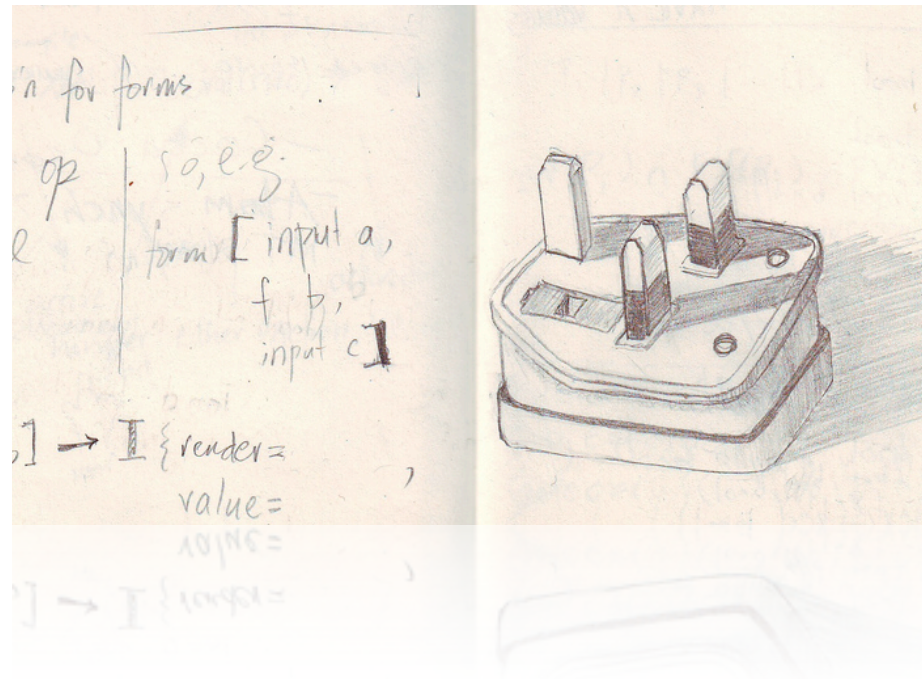 n for forms
op | so, e.g.
form [ input a,
f b,
input c ]
] → I {render=
value=
,